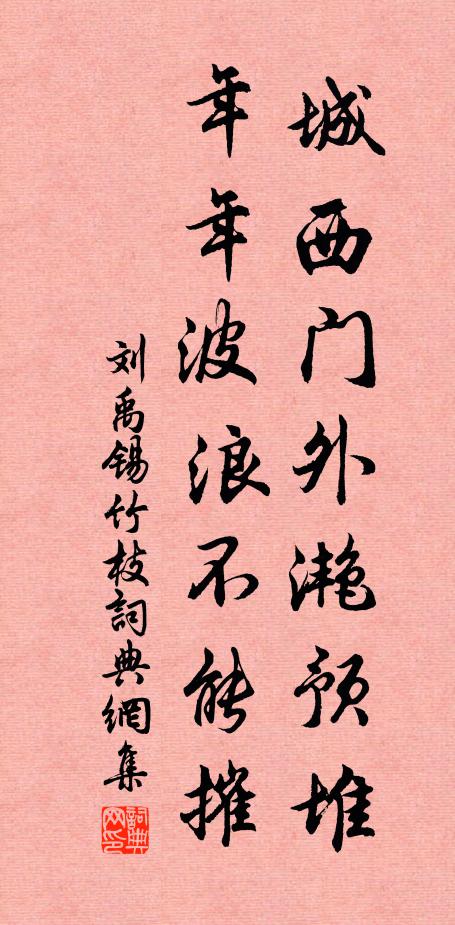 城西门外滟预堆
年年波浪不能摧
刘禹锡竹枝詞典網集
詞典网印